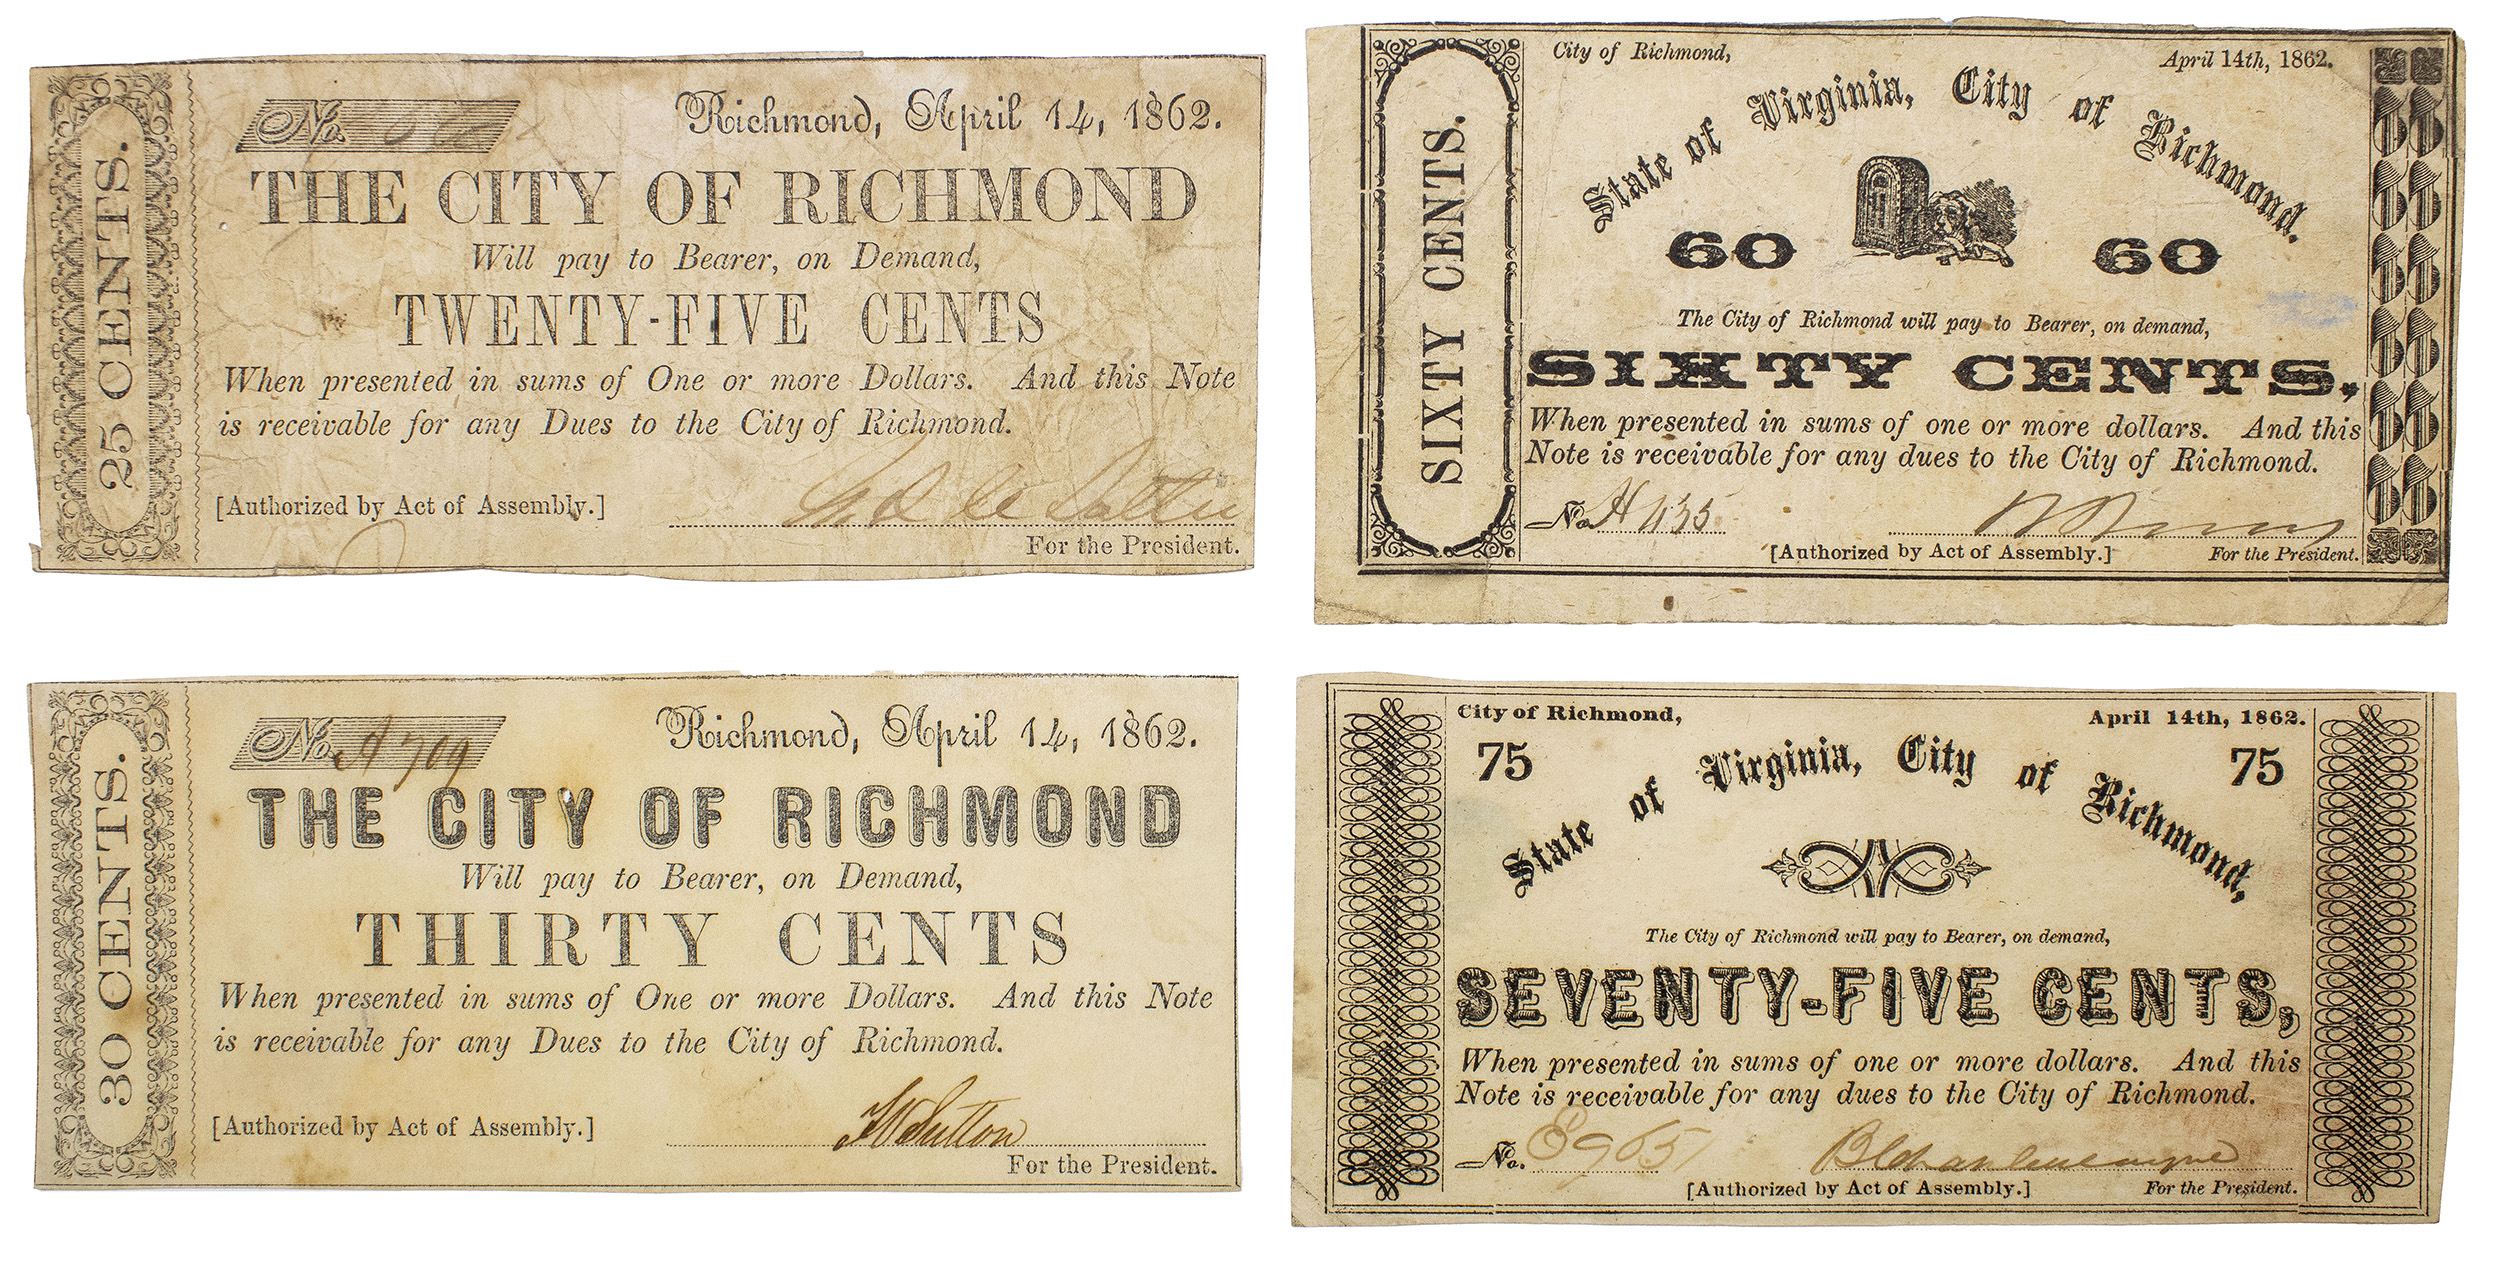 25 CENTS.
No.
Richmond, April 14, 1862.
THE CITY OF RICHMOND
Will pay to Bearer, on Demand,
TWENTY-FIVE CENTS
When presented in sums of One or more Dollars. And this Note
is receivable for any Dues to the City of Richmond.
[Authorized by Act of Assembly.]
For the President.
SIXTY CENTS.
City of Richmond, April 14th, 1862.
State of Virginia, City of Richmond.
60 60
The City of Richmond will pay to Bearer, on demand,
SIXTY CENTS,
When presented in sums of one or more dollars. And this
Note is receivable for any dues to the City of Richmond.
No.
[Authorized by Act of Assembly.] For the President.
30 CENTS.
No. A 709
Richmond, April 14, 1862.
THE CITY OF RICHMOND
Will pay to Bearer, on Demand,
THIRTY CENTS
When presented in sums of One or more Dollars. And this Note
is receivable for any Dues to the City of Richmond.
[Authorized by Act of Assembly.] Sutton
For the President.
City of Richmond, April 14th, 1862.
75 75
State of Virginia, City of Richmond,
The City of Richmond will pay to Bearer, on demand,
SEVENTY-FIVE CENTS,
When presented in sums of one or more dollars. And this
Note is receivable for any dues to the City of Richmond.
No.
[Authorized by Act of Assembly.] For the President.